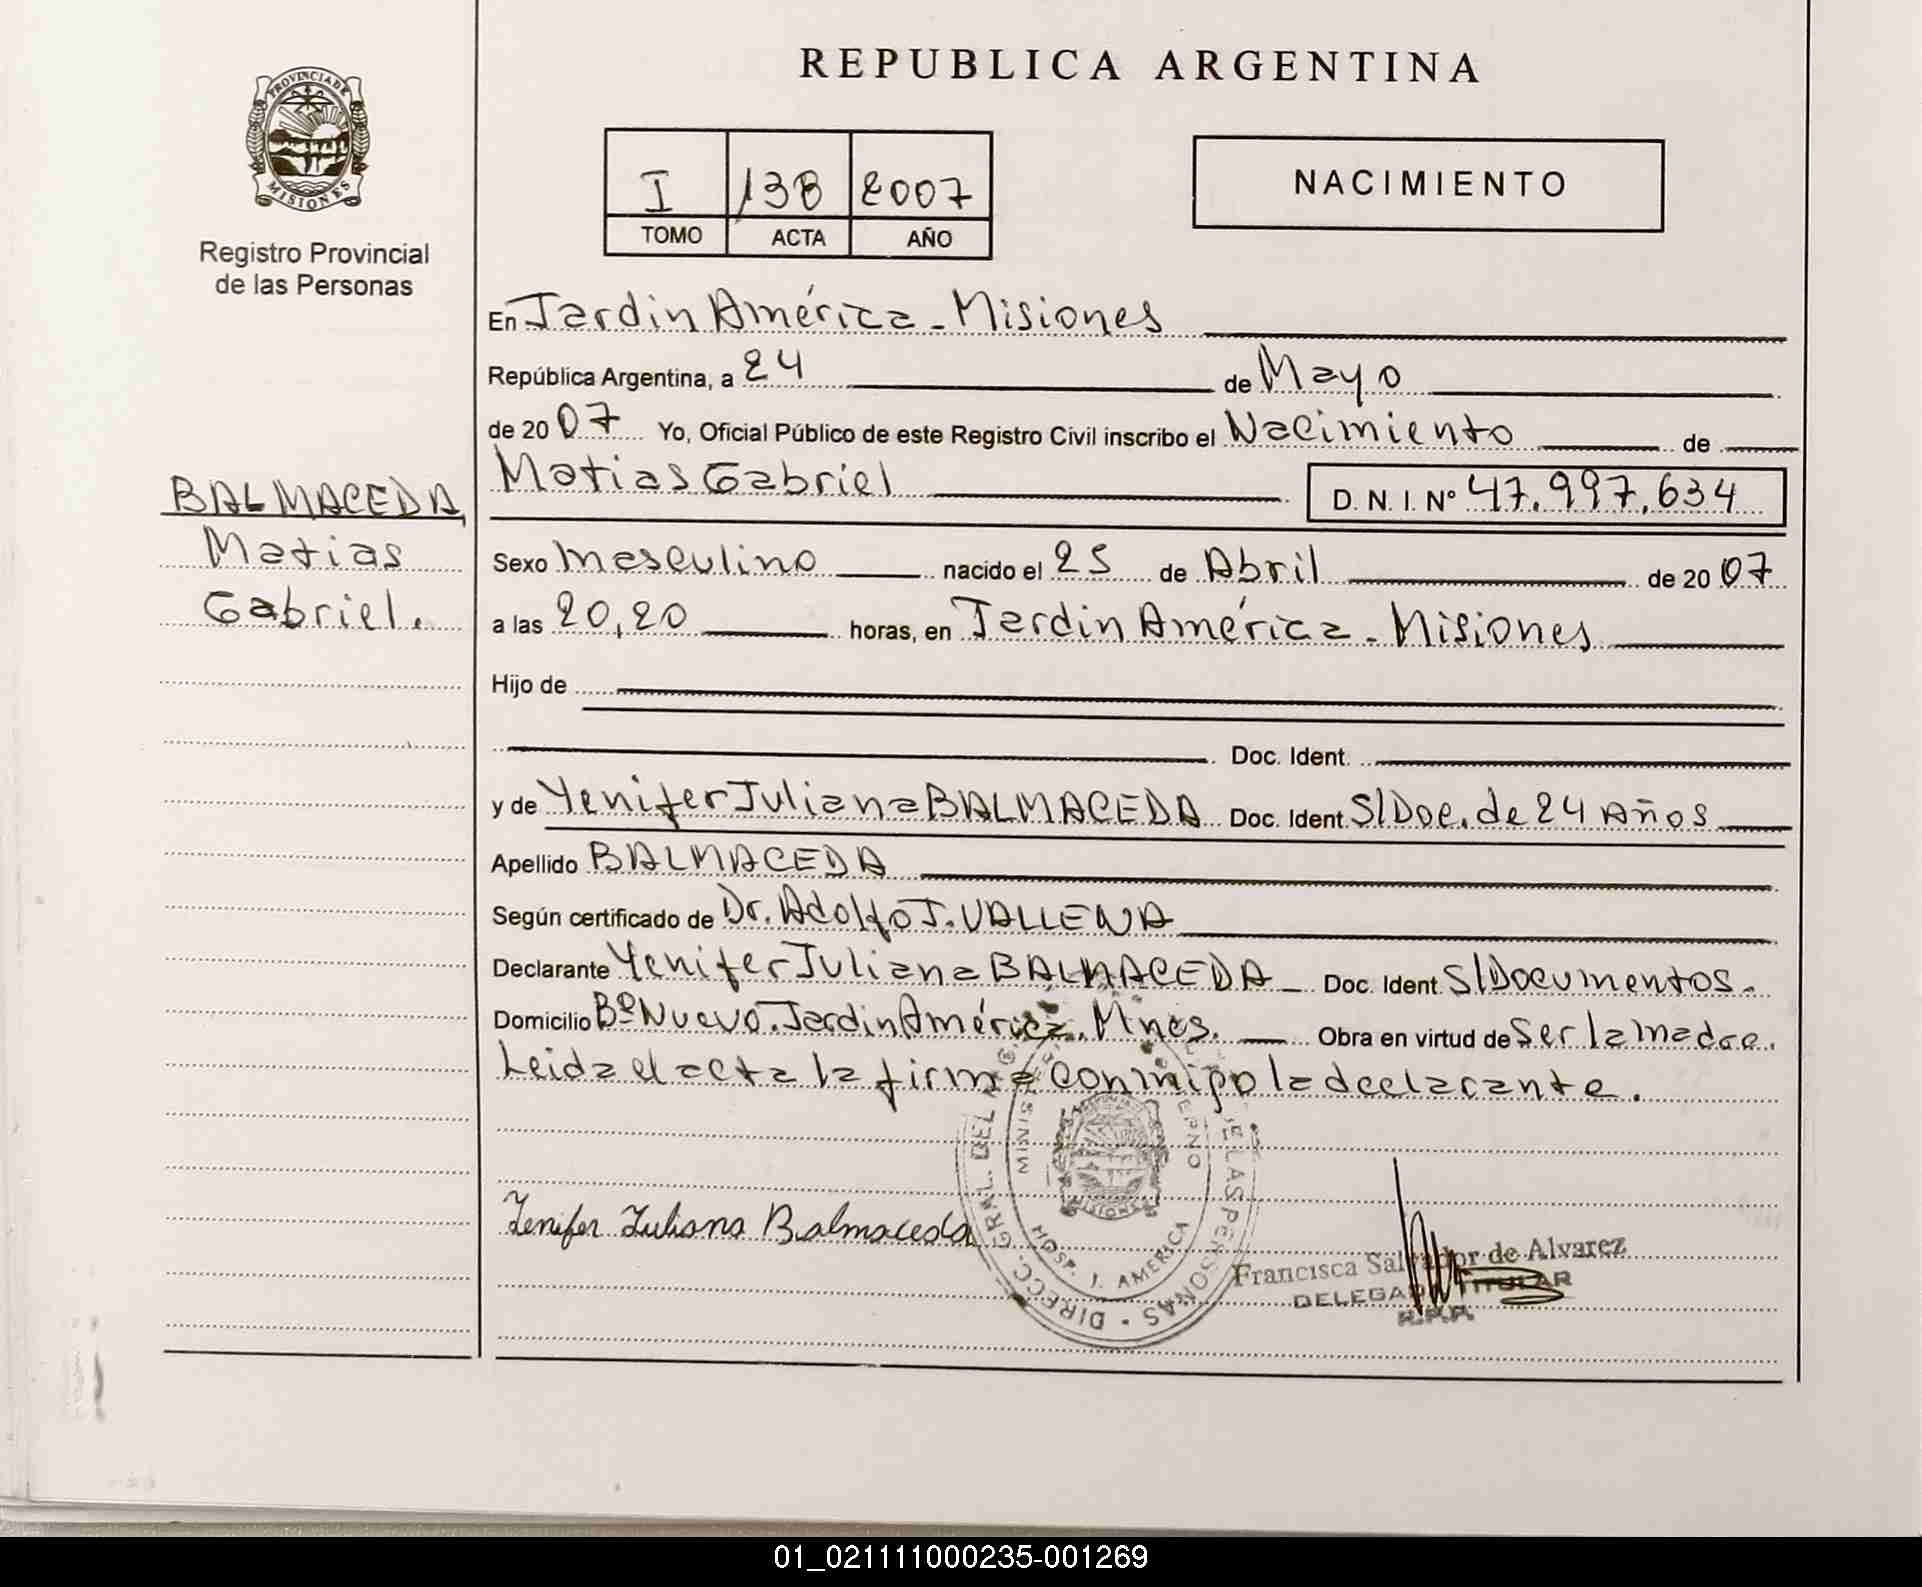 REPUBLICA ARGENTINA
PROVINCIA DE
MISIONES
Registro Provincial
de las Personas
I 138 2007
TOMO ACTA AÑO
NACIMIENTO
En Jardin América - Misiones
República Argentina, a 24 de Mayo
de 2007 Yo, Oficial Público de este Registro Civil inscribo el Nacimiento de
Matias Gabriel D. N. I. Nº 47.997.634
BALMACEDA,
Matias
Gabriel.
Sexo masculino nacido el 25 de Abril de 2007
a las 20,20 horas, en Jardin América - Misiones
Hijo de
Doc. Ident.
y de Yenifer Juliana BALMACEDA Doc. Ident. S/Doc. de 24 Años
Apellido BALMACEDA
Según certificado de Dr. Adolfo J. VALLENA
Declarante Yenifer Juliana BALMACEDA Doc. Ident. S/Documentos.
Domicilio Bº Nuevo. Jardin América. Mnes. Obra en virtud de Ser la madre.
Leida el acta la firma conmigo la declarante.
DIRECC. GRAL. DEL DE LAS PERSONAS
HOSP. J. AMERICA
MISIONES
Yenifer Juliana Balmaceda
Francisca Salvador de Alvarez
DELEGADA TITULAR
R.P.P.
01_021111000235-001269